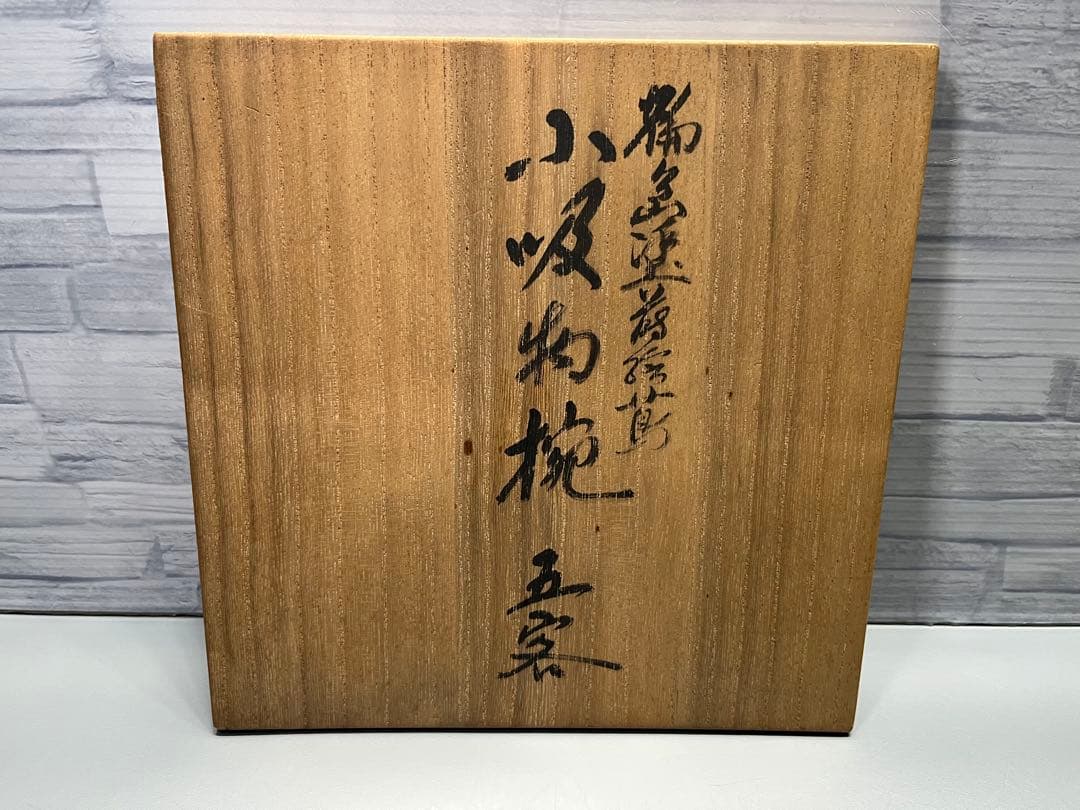 輪島塗蒔絵蔦
小吸物椀 五客